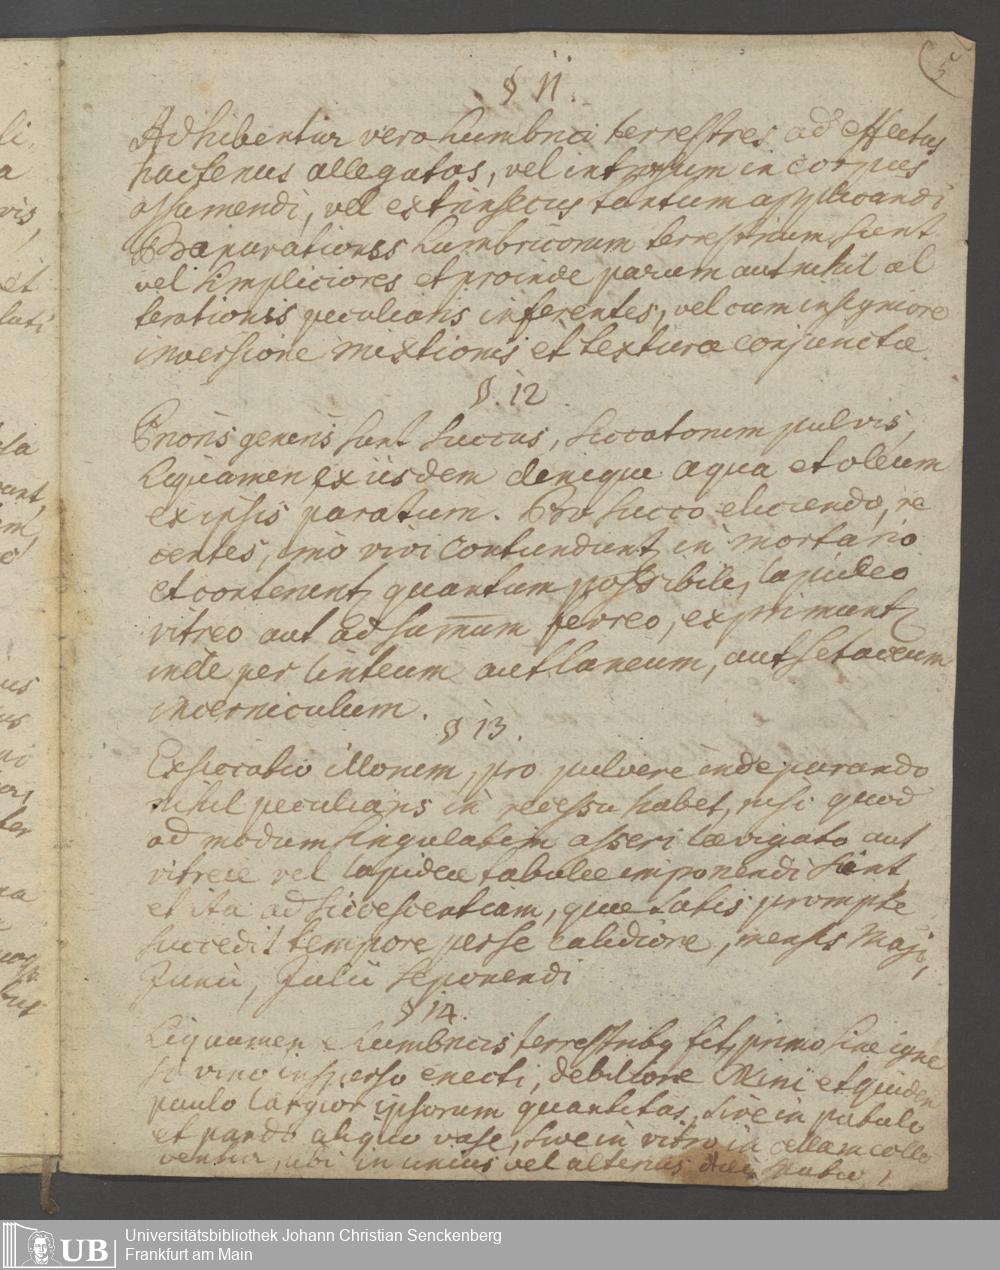 5
§ 11.
Adhibentur vero Lumbrici terrestres ad effectus
hactenus allegatos, vel introrsum in corpus
assumendi, vel extrinsecus tantum applicandi
Praeparationes Lumbricorum terrestrium fient
vel simpliciores et proinde parum aut nihil al
terationis peculiaris inferentes, vel cum insigniore
inversione mixtionis et texturae conjunctae
§. 12
Prioris generis sunt succus, siccatorum pulvis,
Liquamen ex iisdem denique aqua et oleum
ex ipsis paratum. Pro succo eliciendo, re
centes, imo vivi contundunt in mortario
et conterunt quantum possibile, lapideo
vitreo aut ad sum̄um ferreo, exprimunt
inde per linteum aut laneum, aut setaceum
incerniculum.
§ 13.
Exsiccatio illorum, pro pulvere inde parando
nihil peculiaris in recessu habet, nisi quod
ad modum singulatim asseri laevigato aut
vitreae vel lapideae tabulae imponendi sient
et ita ad siccescentiam, quae satis prompte
succedit tempore per se calidiore, mensis Maji,
Junii, Julii seponendi
§ 14.
Liquamen e Lumbricis terrestribq fit, primo sine igne
si vino insperso enecti, debiliore Mini et quidem
paulo largior ipsorum quantitas, sive in patulo
et pando aliquo vase, sive in vitro in cellam collo
ventur, ubi in unius vel alterius
Universitätsbibliothek Johann Christian Senckenberg
Frankfurt am Main
UB